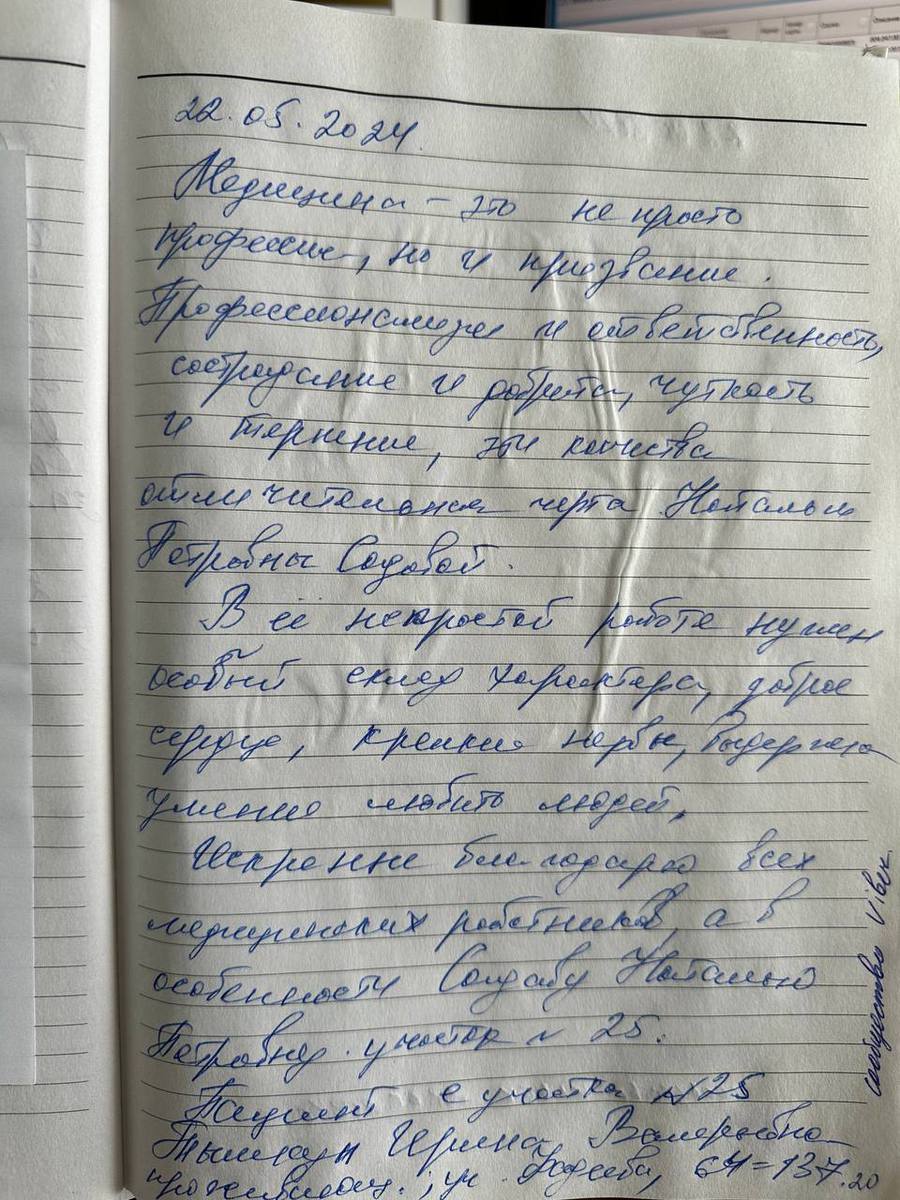 22.05.2024.
Медицина – это не просто
профессия, но и призвание.
Профессионализм и ответственность,
сострадание и доброта, чуткость
и терпение, эти качества
отличительная черта Натальи
Петровны Садовой.
В её непростой работе нужен
особый склад характера, доброе
сердце, крепкие нервы, выдержка
умение любить людей.
Искренне благодарю всех
медицинских работников, а в
особенности Садову Наталью
Петровну. участок N 25.
Пациент с участка N25
Ирина Валерьевна
проживающ., ул. Фадеева, 64=137.20
сообщество